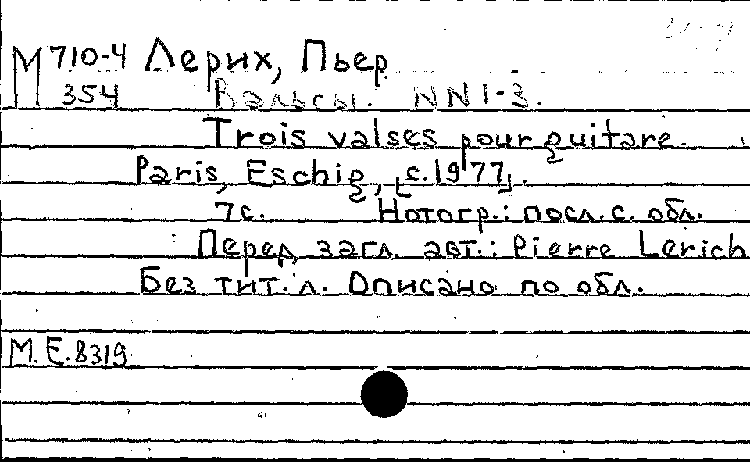 М 710-4 Лерих, Пьер
354 Вальсы. NN 1-3.
Trois valses pour guitare.
Paris, Eschig, [c. 1977].
7 с. Нотогр.: посл. с. обл.
Перед загл. авт.: Pierre Lerich
Без тит. л. Описано по обл.
М. Е. 8319